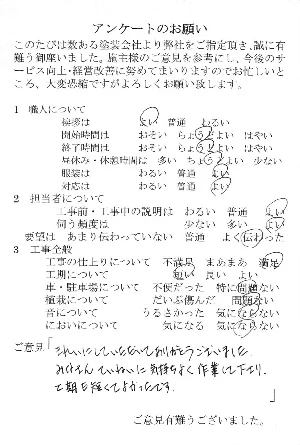 アンケートのお願い
このたびは数ある塗装会社より弊社をご指定頂き、誠に有
難う御座いました。施主様のご意見を参考にし、今後のサ
ービス向上・経営改善に努めてまいりますのでお忙しいと
ころ、大変恐縮ですがよろしくお願い致します。
1 職人について
挨拶は よい 普通 わるい
開始時間は おそい ちょうどよい はやい
終了時間は おそい ちょうどよい はやい
昼休み・休憩時間は 多い ちょうどよい 少ない
服装は わるい 普通 よい
対応は わるい 普通 よい
2 担当者について
工事前・工事中の説明は わるい 普通 よい
伺う頻度は 少ない 多い よい
要望は あまり伝わっていない 普通 よく伝わった
3 工事全般
工事の仕上りについて 不満足 まあまあ 満足
工期について 短い 長い よい
車・駐車場について 不便だった 特に問題ない
植栽について だいぶ傷んだ 問題ない
音について うるさかった 気にならない
においについて 気になる 気にならない
ご意見「きれいにしていただいてありがとうございました
みなさん ていねいに気持ちよく作業して下さり、
工期も短くてよかったです。」
ご意見有難うございました。